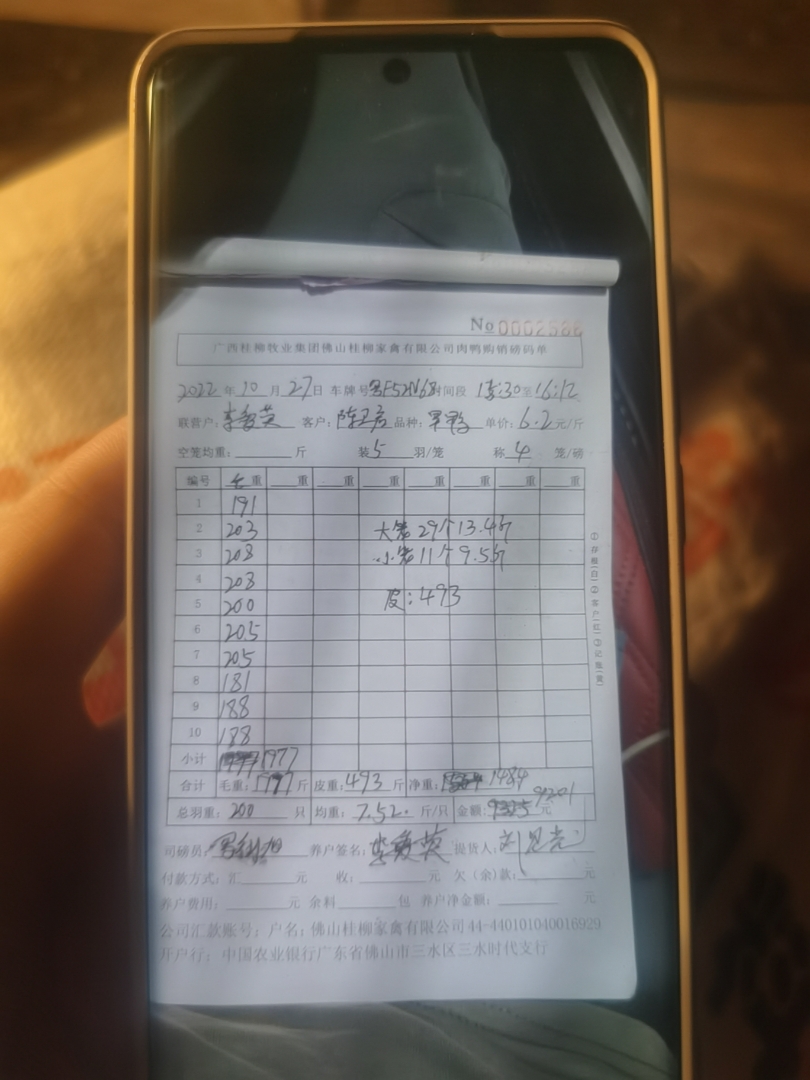 No 0002586
广西桂柳牧业集团佛山桂柳家禽有限公司肉鸭购销磅码单
2022年10月27日 车牌号 时间段 15:30至16:12
联营户: 客户: 品种: 单价:6.2元/斤
空笼均重: 斤 装5羽/笼 称4笼/磅
编号 毛重 重 重 重 重 重 重 重
1 191
2 203 大笼29个13.4斤
3 208 小笼11个9.5斤
4 208
5 200 皮:493
6 205
7 205
8 181
9 188
10 188
小计 1977
合计 毛重:1977斤 皮重:493斤 净重:1484
总羽重:200只 均重:7.52斤/只 金额:9201元
司磅员: 养户签名: 提货人:
付款方式:汇 元 收: 元 欠(余)款: 元
养户费用: 元 余料 包 养户净金额: 元
公司汇款账号:户名:佛山桂柳家禽有限公司44-440101040016929
开户行:中国农业银行广东省佛山市三水区三水时代支行
①存根(白)②客户(红)③记账(黄)